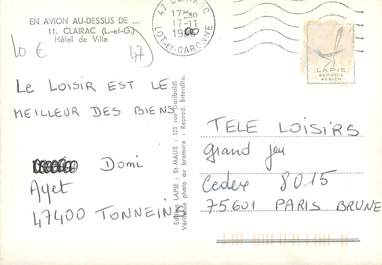 EN AVION AU-DESSUS DE ...
11. CLAIRAC (L.-et-G.)
Hôtel de Ville
10 €
47
17-11
LOT-ET-GARONNE
LAPIE
SERVICE
AERIEN
LE LOISIR EST LE
MEILLEUR DES BIENS
Domi
Ayet
47400 TONNEINS
Editions LAPIE : St-MAUR : 125 rue Garibaldi
Véritable photo au bromure : Reprod. Interdite.
TELE LOISIRS
Grand Jeu
Cedex 8015
75601 PARIS BRUNE